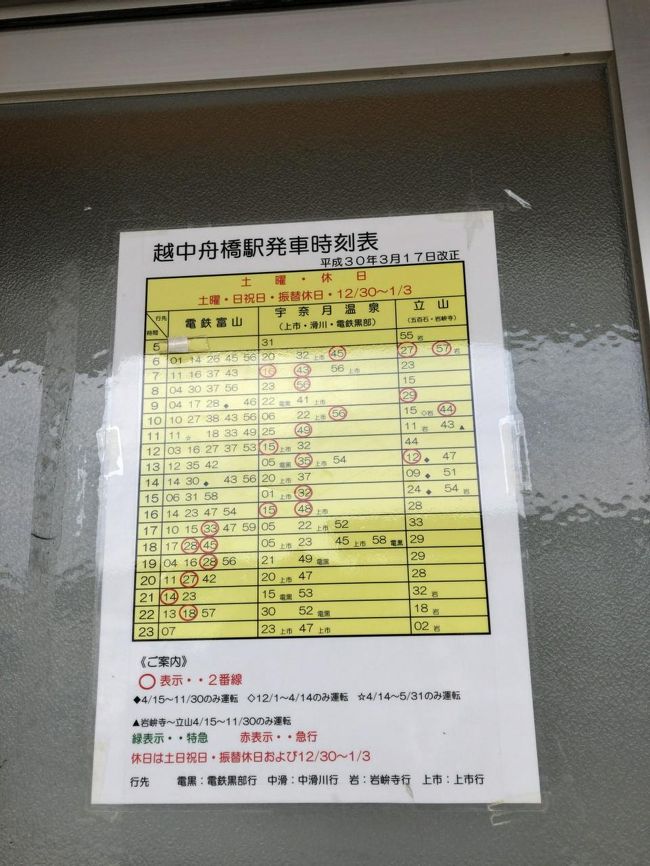 越中舟橋駅発車時刻表
平成30年3月17日改正
土曜・休日
土曜・日祝日・振替休日・12/30～1/3
行先 時間 電鉄富山 宇奈月温泉 (上市・滑川・電鉄黒部) 立山 (五百石・岩峅寺)
5 31 55岩
6 01 14 26 45 56 20 32上市 45 27 57岩
7 11 16 37 43 16 43 56上市 23
8 04 30 37 56 23 56 15
9 04 17 28◆ 46 22電黒 41上市 29
10 10 27 38 53 56 06 22上市 56 15◇岩 44
11 11☆ 18 33 49 25 49 11岩 43▲
12 03 16 27 37 53 15上市 32 44
13 12 35 42 05電黒 35上市 54 12◆ 47
14 14 30◆ 43 56 20 37 09◆ 51
15 06 31 58 01上市 32 24◆ 54岩
16 14 23 47 54 15 48上市 28
17 10 15 33 47 59 05 22上市 52 33
18 17 28 45 05上市 23 45上市 58電黒 29
19 04 16 28 56 21 49電黒 29
20 11 27 42 20 47 28
21 14 23 15電黒 53 32岩
22 13 18 57 30 52電黒 18岩
23 07 23上市 47上市 02岩
《ご案内》
○表示・・2番線
◆4/15～11/30のみ運転 ◇12/1～4/14のみ運転 ☆4/14～5/31のみ運転
▲岩峅寺～立山4/15～11/30のみ運転
緑表示・・特急 赤表示・・急行
休日は土日祝日・振替休日および12/30～1/3
行先 電黒：電鉄黒部行 中滑：中滑川行 岩：岩峅寺行 上市：上市行